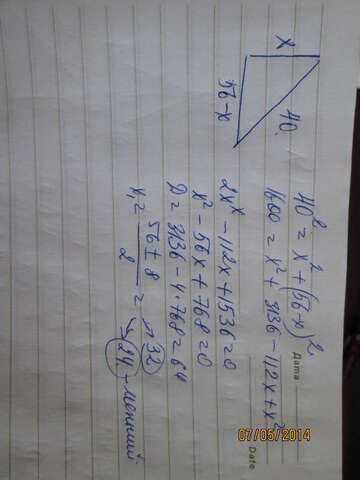 Дата
Date
x
40
56-x
40² = x² + (56-x)²
1600 = x² + 3136 - 112x + x²
2x^x - 112x + 1536 = 0
x² - 56x + 768 = 0
D = 3136 - 4·768 = 64
x₁ = (56 ± 8)/2 = ↗ 32
↘ 24 - меньший
07/05/2014